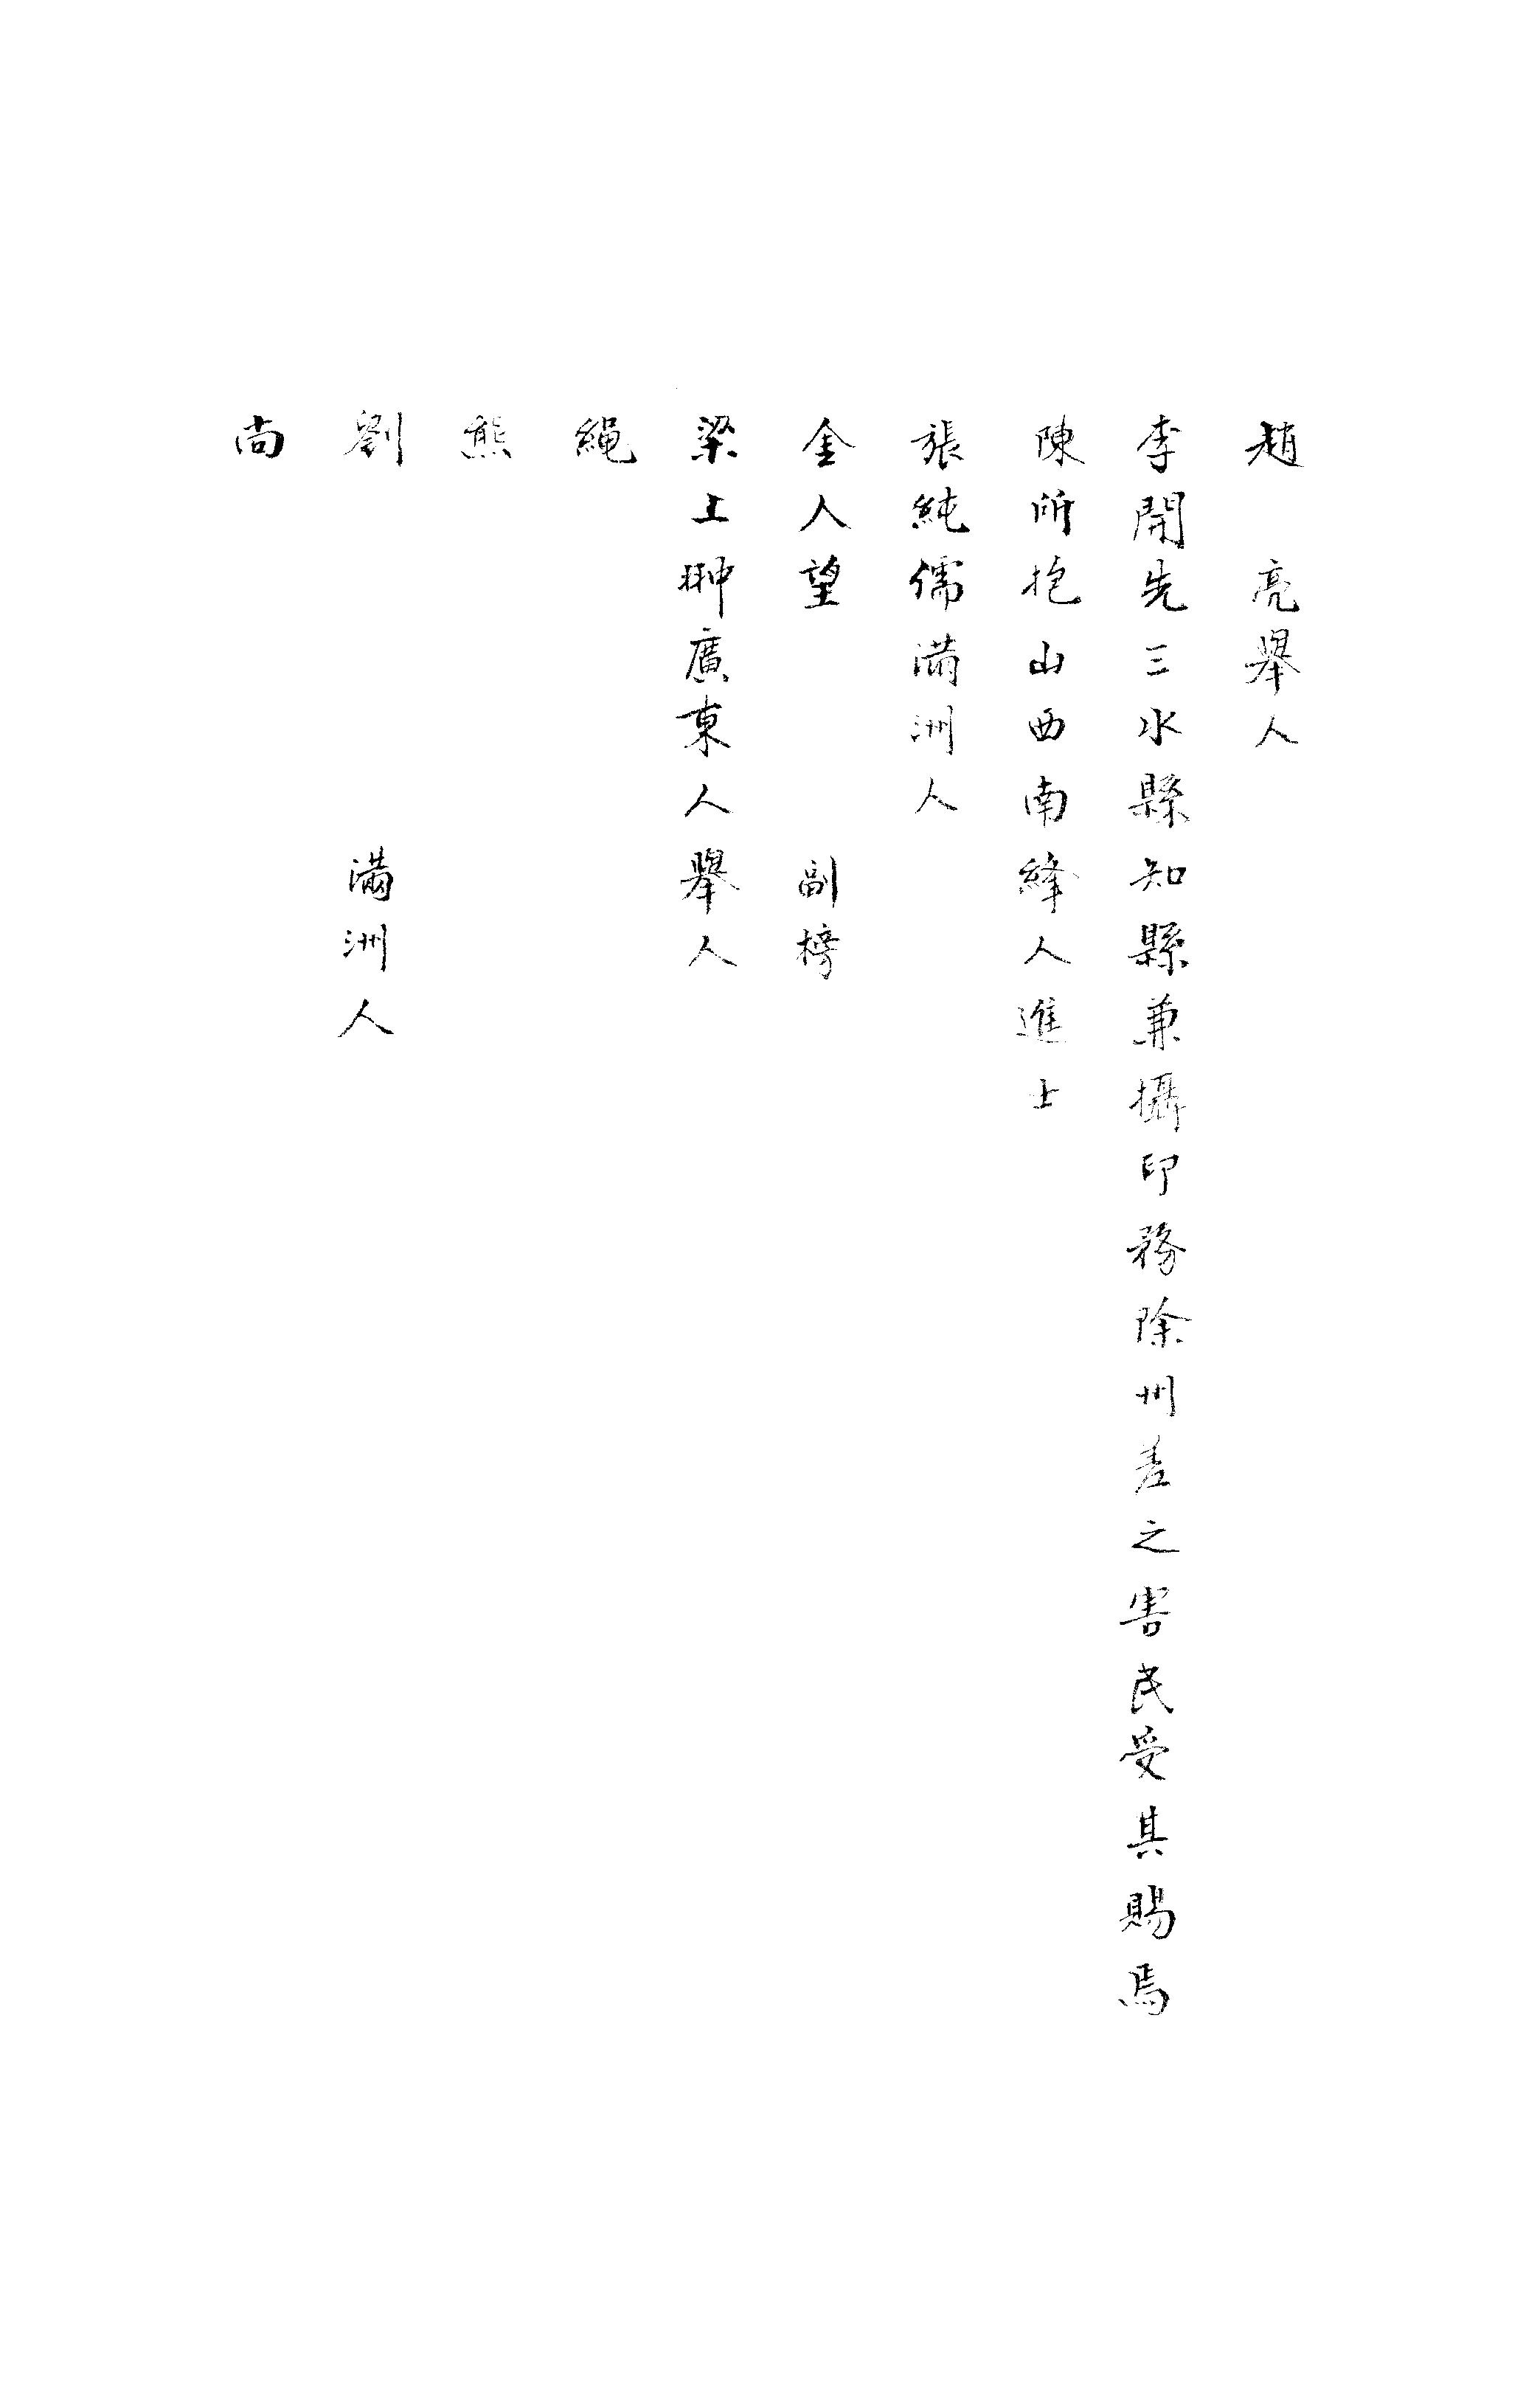 趙　亮舉人
李開先三水縣知縣兼攝印務除州差之害民受其賜焉
陳所抱山西南絳人進士
張純儒滿洲人
金人望　　　副榜
梁上翀廣東人舉人
繩
熊
劉　　　　　滿洲人
尚